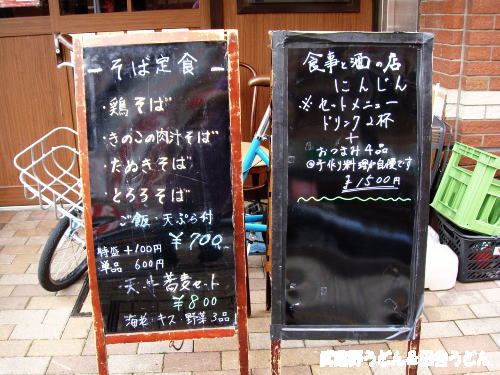 そば定食
・鶏そば
・きのこの肉汁そば
・たぬきそば
・とろろそば
ご飯・天ぷら付
￥700-
特盛+100円
単品 600円
天丼 蕎麦セット
￥800
海老・キス・野菜3品
食事と酒の店
にんじん
※セットメニュー
ドリンク2杯
+
おつまみ4品
@手作り料理が自慢です
￥1500円
武蔵野うどん&田舎うどん